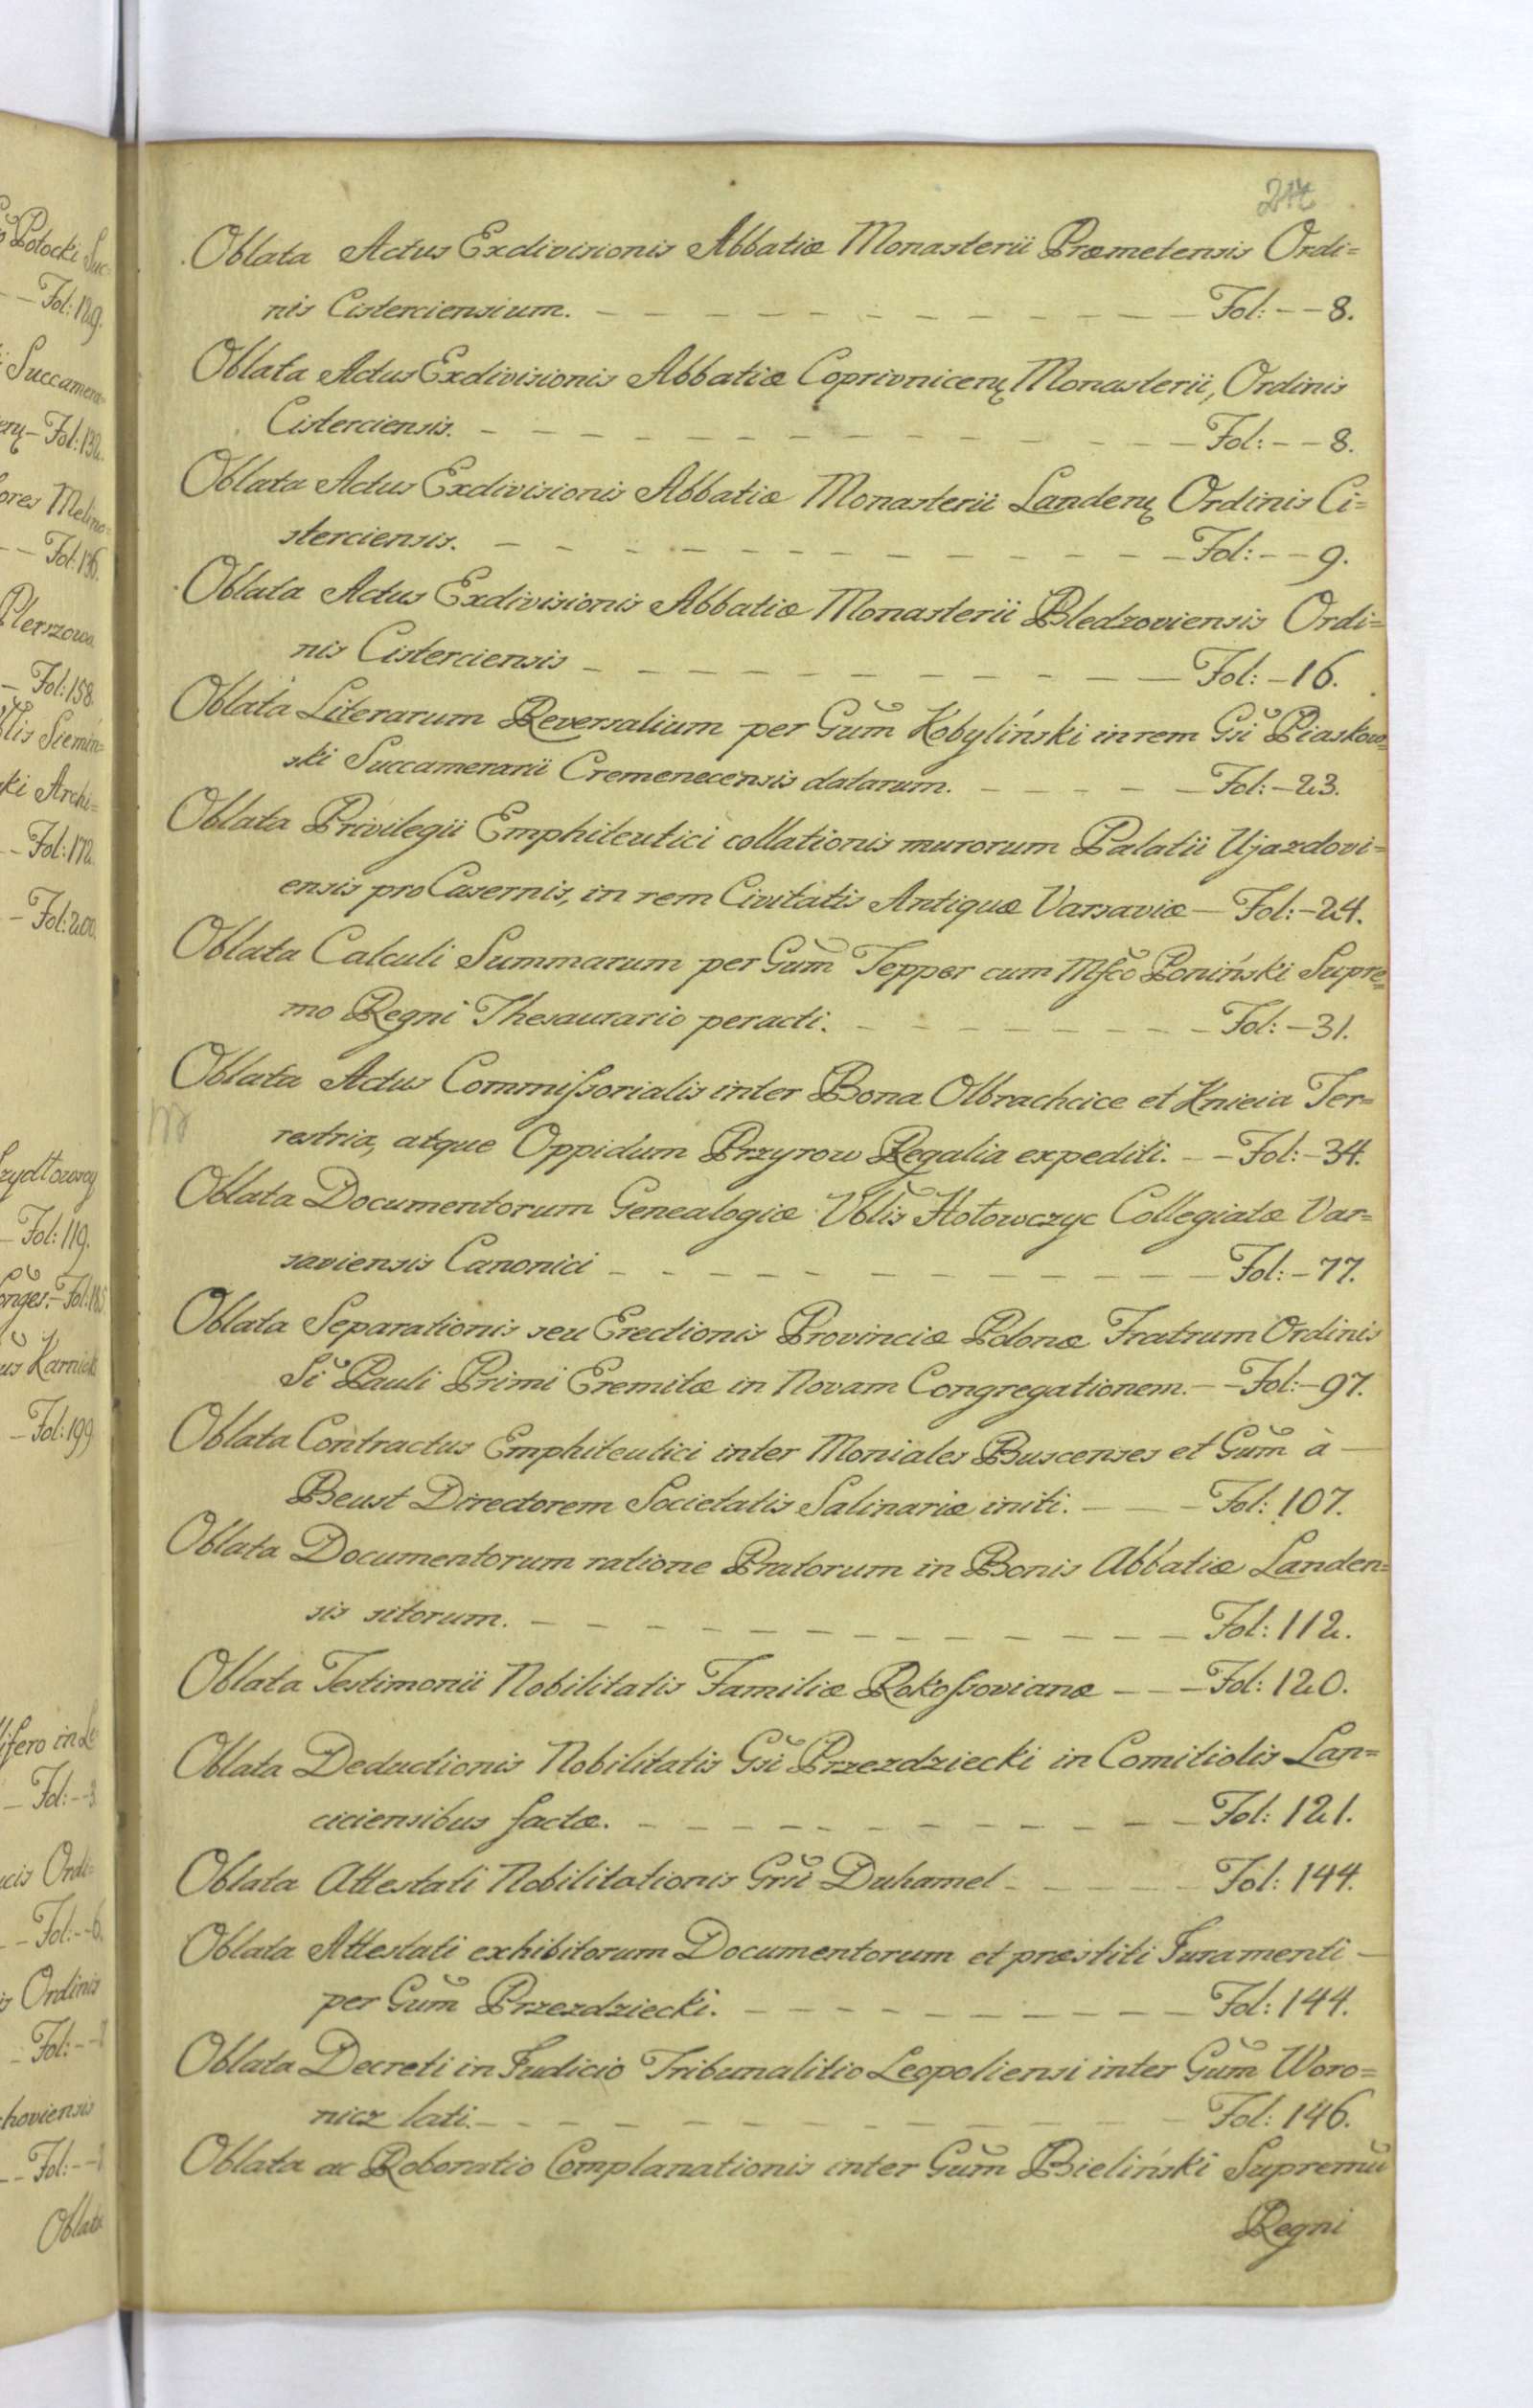 Potocki Suc:
Fol: 129.
Succamera=
Fol: 132.
ores Melino=
Fol: 136.
Plerszowa
Fol: 158.
Vblis Siemin=
ski Archi=
Fol: 172.
Fol: 200.
Szydłowscy
Fol: 119.
onges. Fol: 185
us Karnicki
Fol: 199
ifero in Le
Fol: -3
cis Ordi=
Fol: -6.
is Ordinis
Fol: --
choviensis
Fol: --
Oblata
Oblata Actus Exdivisionis Abbatiæ Monasterii Præmetensis Ordi=
nis Cisterciensium. Fol: -- 8.
Oblata Actus Exdivisionis Abbatiæ Coprivnicen̨ Monasterii, Ordinis
Cisterciensis. Fol: -- 8.
Oblata Actus Exdivisionis Abbatiæ Monasterii Landen̨ Ordinis Ci=
sterciensis. Fol: -- 9.
Oblata Actus Exdivisionis Abbatiæ Monasterii Bledzoviensis Ordi=
nis Cisterciensis Fol: -16.
Oblata Literarum Reversalium per Gum̃ Kobyliński in rem Gsĩ Piaskow=
ski Succamerarii Cremenecensis datarum. Fol: -23.
Oblata Privilegii Emphiteutici collationis murorum Palatii Ujazdovi=
ensis pro Casernis, in rem Civitatis Antiquæ Varsaviæ Fol: -24.
Oblata Calculi Summarum per Gum̃ Tepper cum Mfcõ Poniński Supre=
mo Regni Thesaurario peracti. Fol: -31.
Oblata Actus Commißorialis inter Bona Olbrachcice et Knieia Ter=
restria, atque Oppidum Przyrow Regalia expediti. Fol: -34.
Oblata Documentorum Genealogiæ Vblis̃ Hołowczyc Collegiatæ Var=
saviensis Canonici Fol: -77.
Oblata Separationis seu Erectionis Provinciæ Polonæ Fratrum Ordinis
Sĩ Pauli Primi Eremitæ in Novam Congregationem. Fol: -97.
Oblata Contractus Emphiteutici inter Moniales Buscenses et Gum̃ à
Beust Directorem Societatis Salinariæ initi. Fol: 107.
Oblata Documentorum ratione Pratorum in Bonis Abbatiæ Landen=
sis sitorum. Fol: 112.
Oblata Testimonii Nobilitatis Familiæ Rokoßovianæ Fol: 120.
Oblata Deductionis Nobilitatis Gsĩ Przezdziecki in Comitiolis Lan=
ciciensibus factæ. Fol: 121.
Oblata Attestati Nobilitationis Grsĩ Duhamel Fol: 144.
Oblata Attestati exhibitorum Documentorum et præstiti Juramenti
per Gum̃ Przezdziecki. Fol: 144.
Oblata Decreti in Judicio Tribunalitio Leopoliensi inter Gum̃ Woro=
nicz lati. Fol: 146.
Oblata ac Roboratio Complanationis inter Gum̃ Bieliński Supremũ
Regni